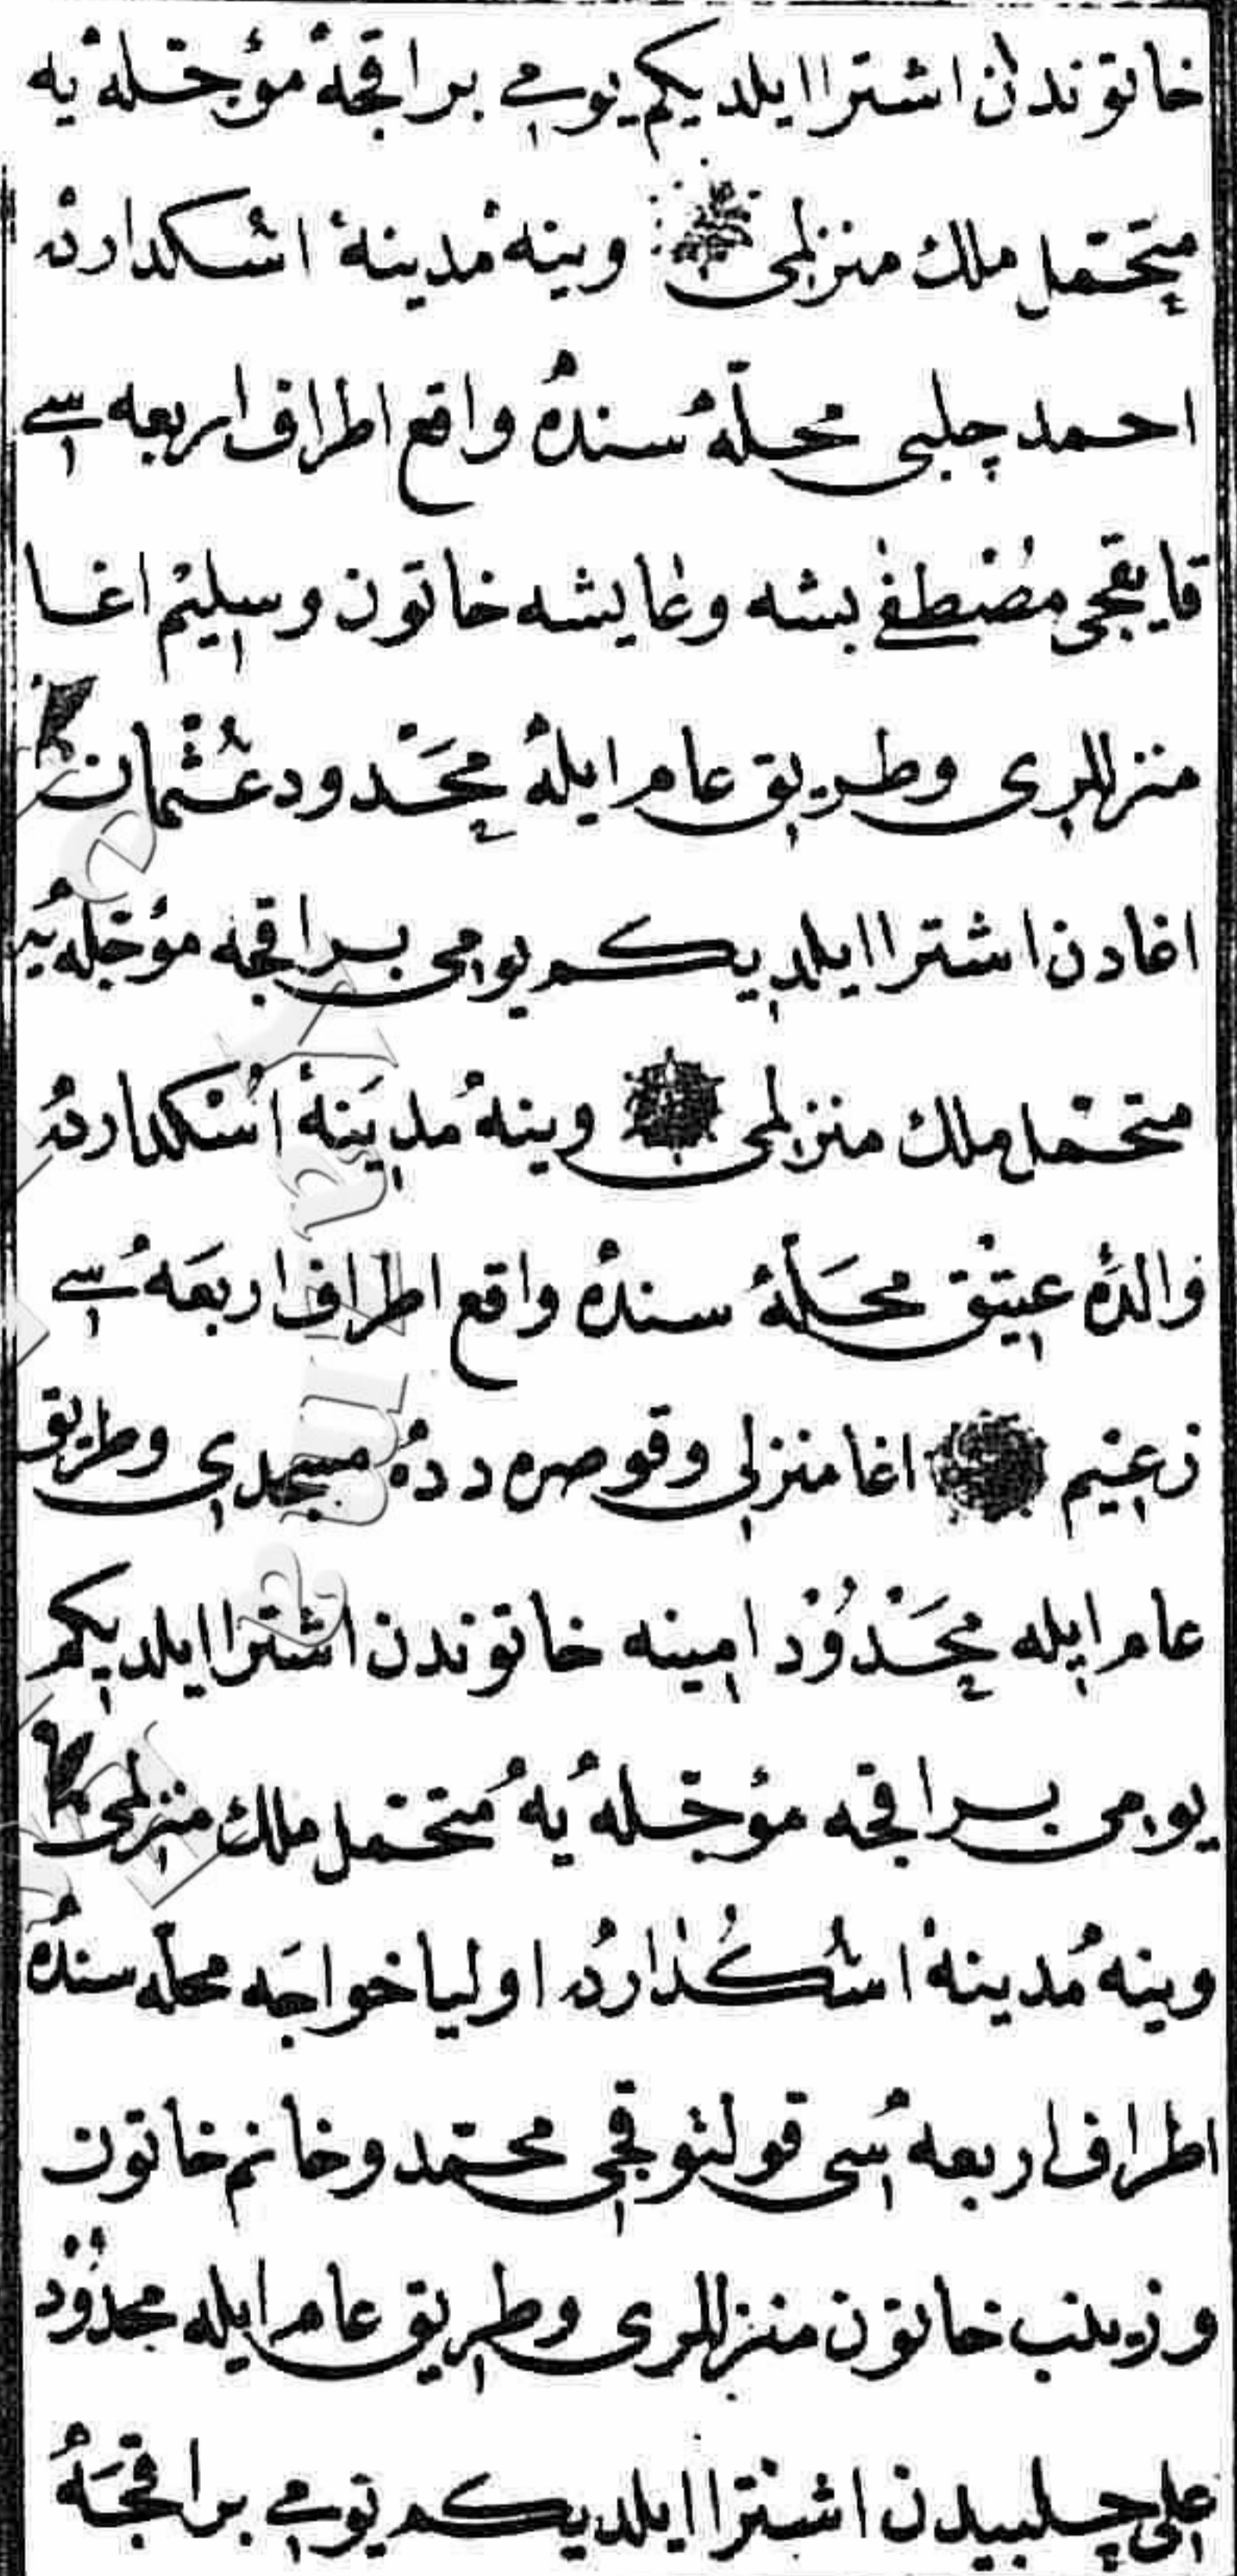 خاتوندن اشترا ايلديكم يومي بر اقچه مؤجّله يه
متحمّل ملك منزلمى وينه مدينۀ اسكدارده
احمد چلبى محلّه سنده واقع اطراف اربعه سى
قايقجى مصطفى بشه وعايشه خاتون وسليم اغا
منزللرى وطريق عام ايله محدود عثمان
اغادن اشترا ايلديكم يومى بر اقچه مؤجّله يه
متحمّل ملك منزلمى وينه مدينۀ اسكدارده
والدۀ عتيق محلّه سنده واقع اطراف اربعه سى
زعيم اغا منزلى وقوصره دده مسجدى وطريق
عام ايله محدود امينه خاتوندن اشترا ايلديكم
يومى بر اقچه مؤجّله يه متحمّل ملك منزلمى
وينه مدينۀ اسكدارده اوليا خواجه محلّه سنده
اطراف اربعه سى قولتوقجى محمّد وخانم خاتون
وزينب خاتون منزللرى وطريق عام ايله محدود
على چلبيدن اشترا ايلديكم يومي بر اقچه